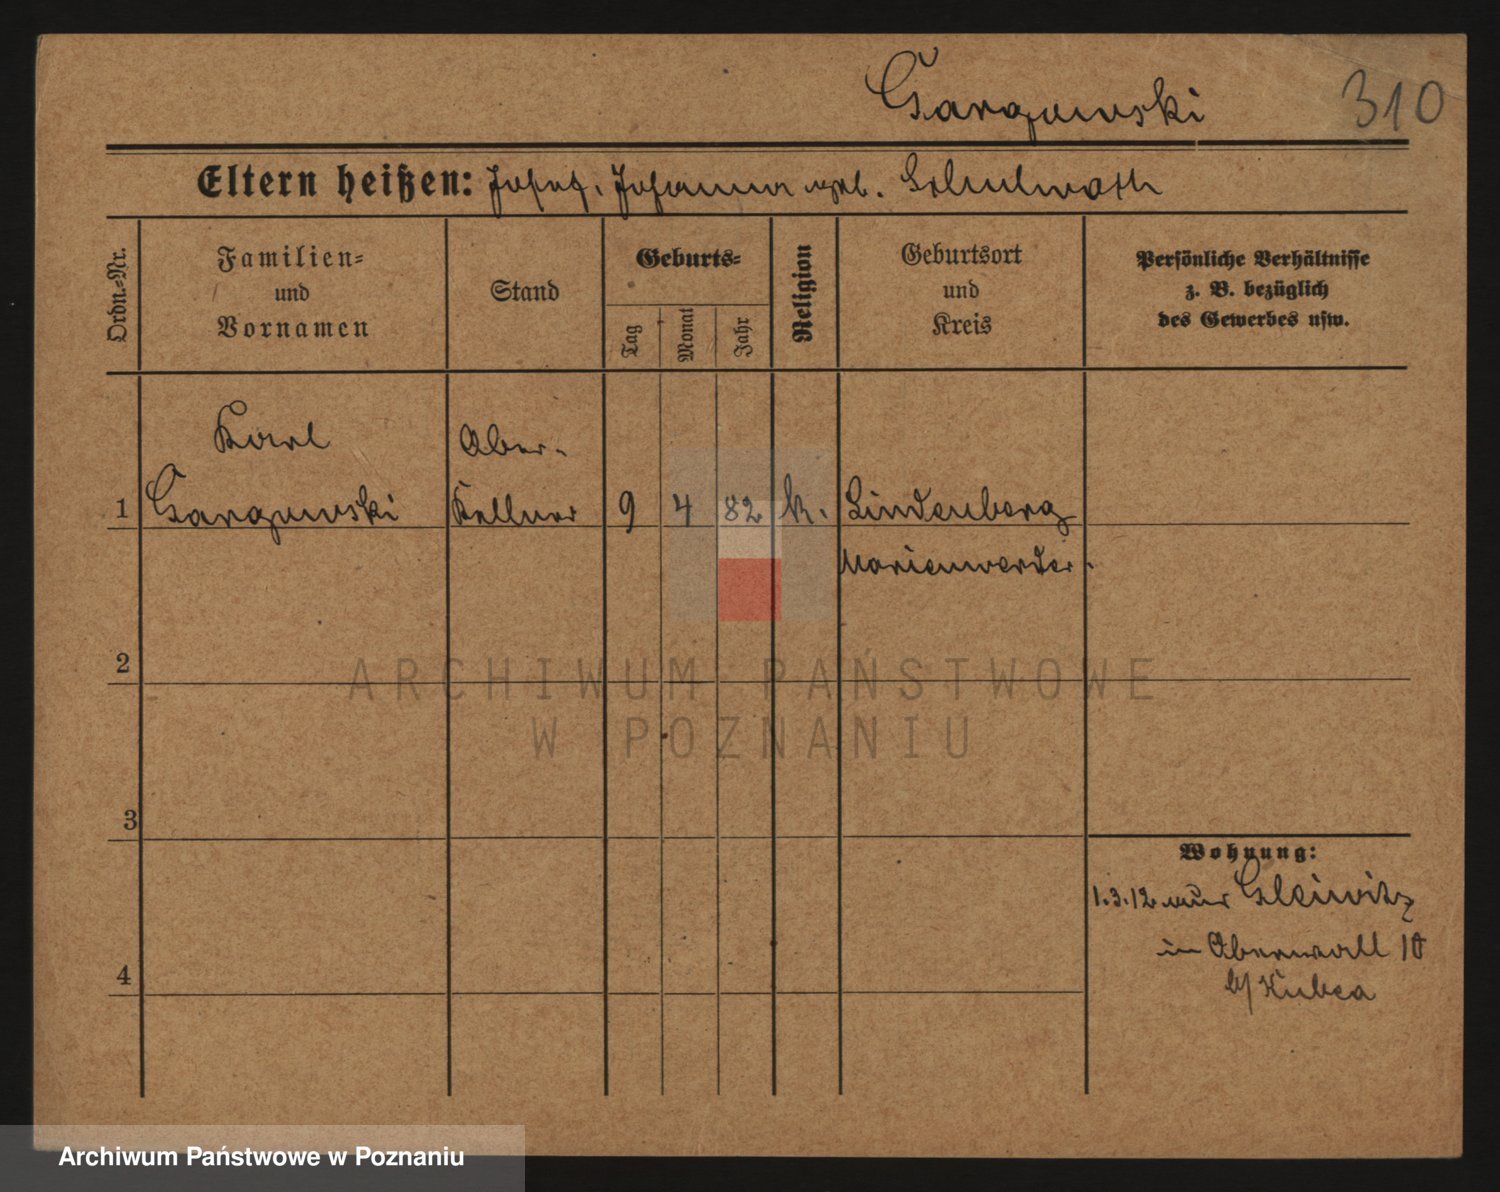 Gargowski 310
Eltern heißen: Josef, Johanna geb.
Ordn.=Nr.
Familien=
und
Vornamen
Stand
Geburts=
Tag
Monat
Jahr
Religion
Geburtsort
und
Kreis
Persönliche Verhältnisse
z. B. bezüglich
des Gewerbes usw.
Karl Ober-
1 Gargowski Kellner 9 4 82 k. Lindenberg
Marienwerder
2
3
4
Wohnung:
1.3.12 aus Gleiwitz
in Oberwall 10
b/ Kubea
ARCHIWUM PAŃSTWOWE
W POZNANIU
Archiwum Państwowe w Poznaniu